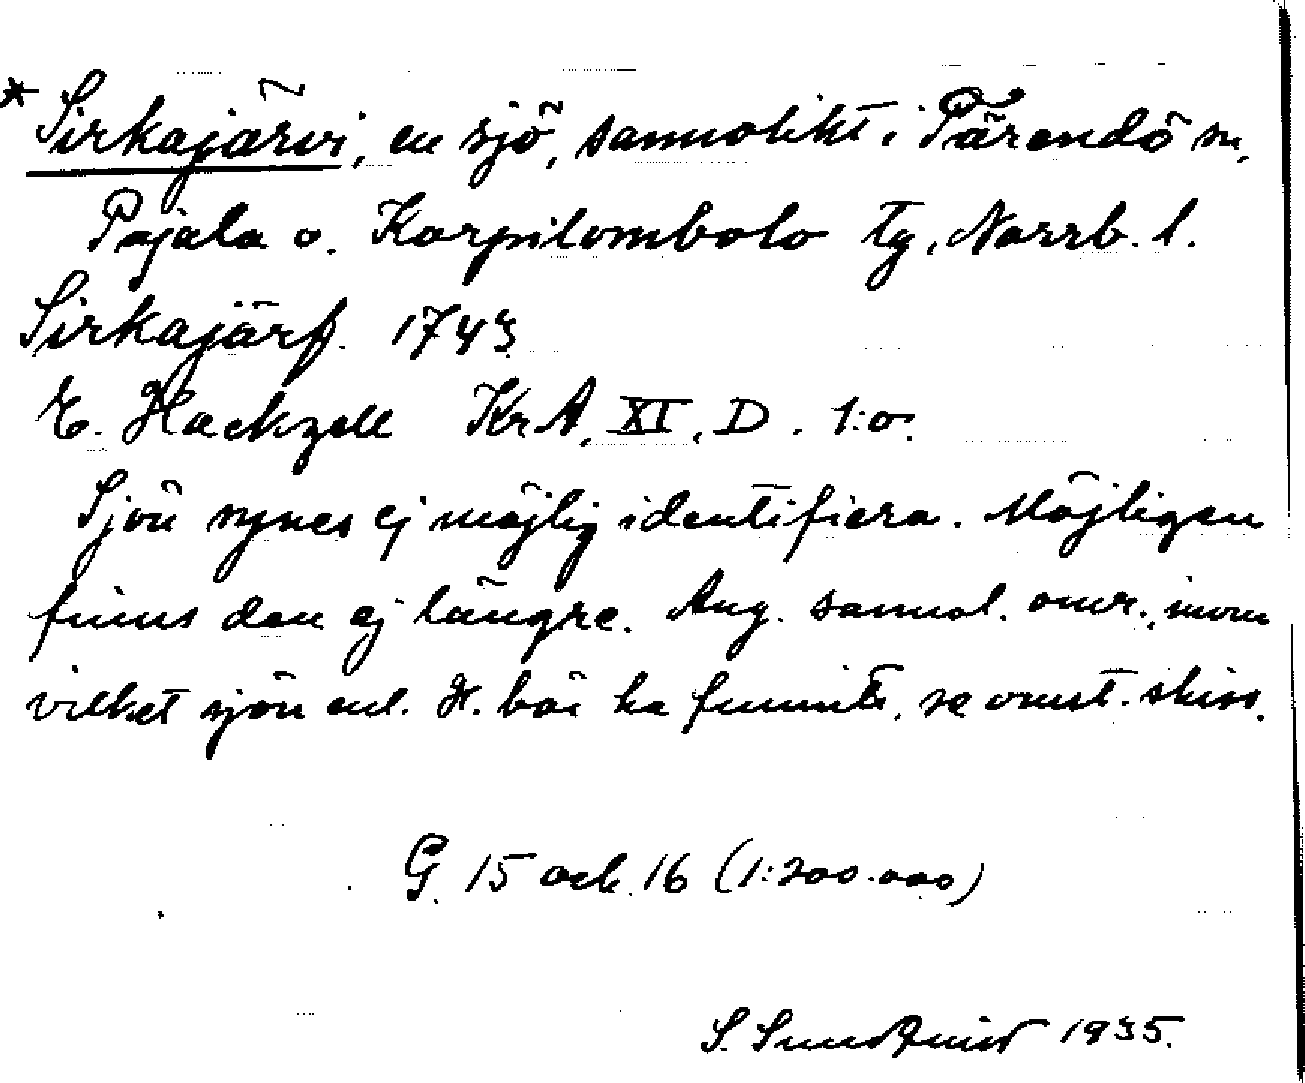 * Sirkajärvi, en sjö, sannolikt i Tärendö sn,
Pajala o. Korpilombolo tg, Norrb. l.
Sirkajärf. 1743
E. Hackzell KrA, XI, D. 1:o.
Sjön synes ej möjlig identifiera. Möjligen
finns den ej längre. Ang. sannol. omr., inom
vilket sjön enl. H. bör ha funnits, se omst. skiss.
G 15 och 16 (1:200.000)
S. Sundquist 1935.